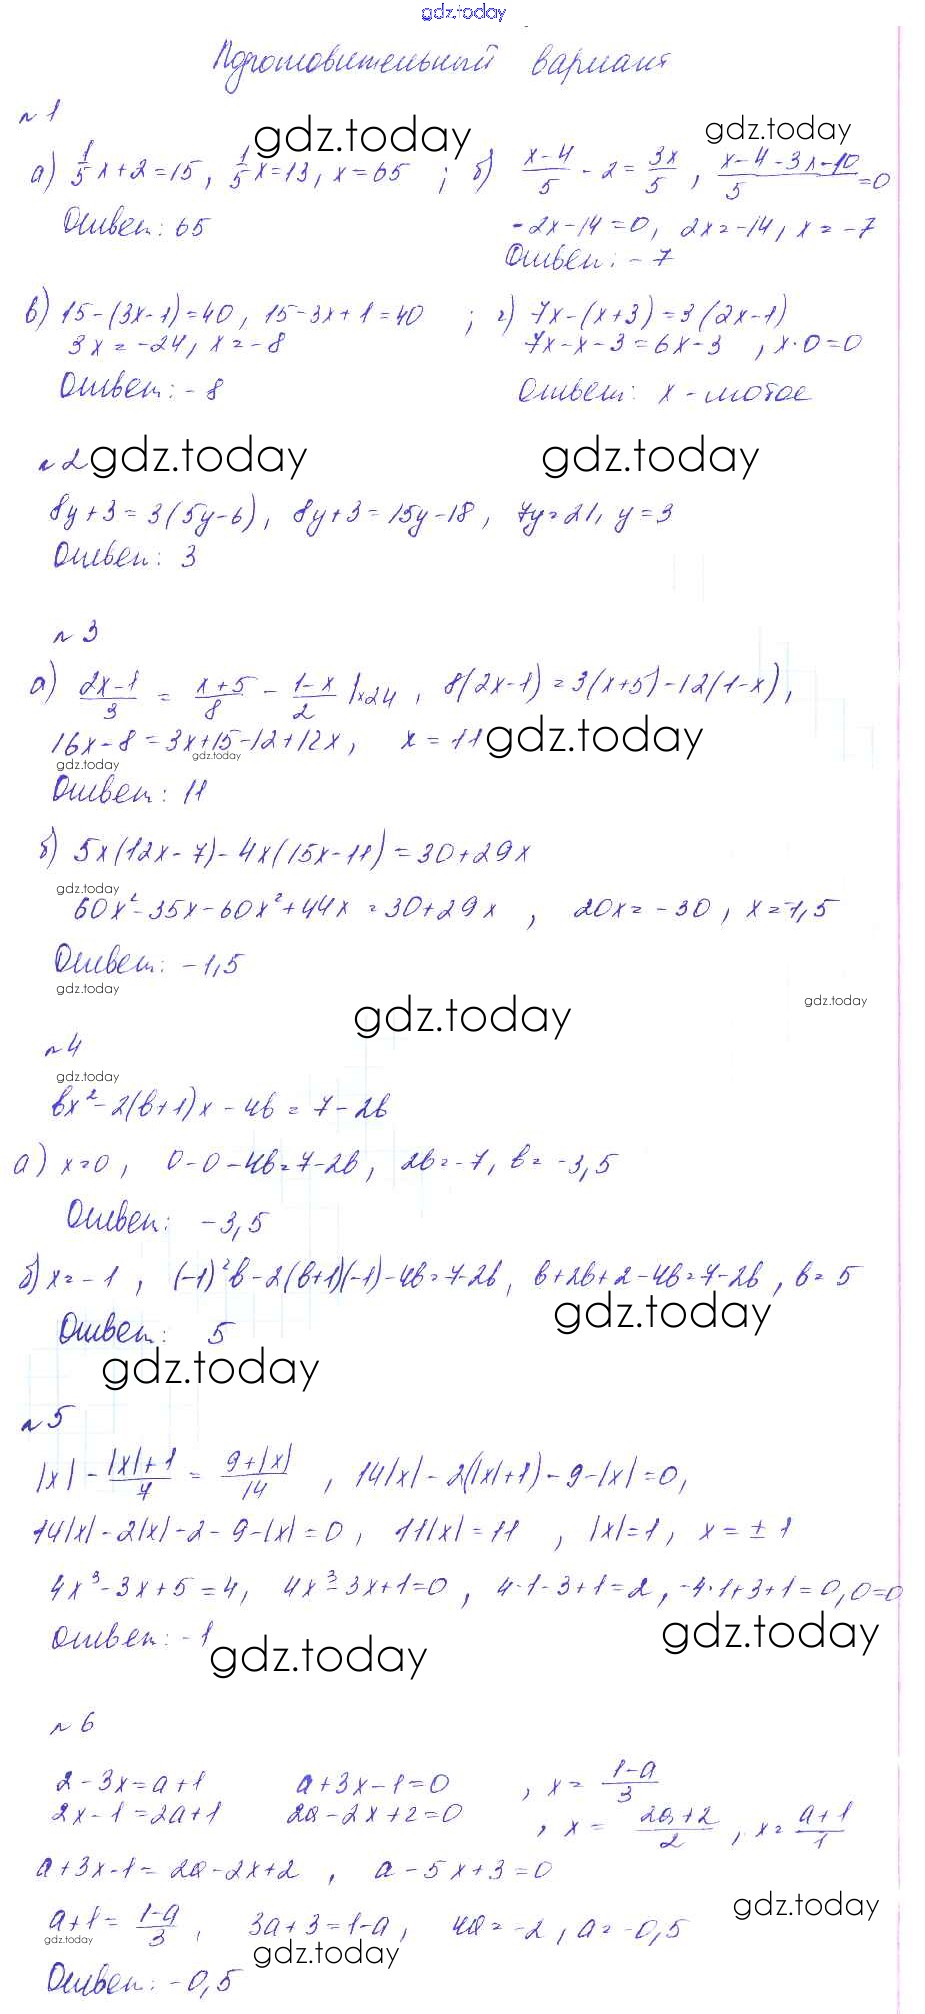 gdz.today
Подготовительный вариант
№1
gdz.today
gdz.today
а) 1/5 x + 2 = 15, 1/5 x = 13, x = 65 ; б) (x-4)/5 - 2 = 3x/5, (x-4-3x-10)/5 = 0
Ответ: 65
-2x-14=0, 2x=-14, x=-7
Ответ: -7
в) 15-(3x-1)=40, 15-3x+1=40 ; г) 7x-(x+3)=3(2x-1)
3x=-24, x=-8
7x-x-3=6x-3, x·0=0
Ответ: -8
Ответ: x - любое
№2
gdz.today
gdz.today
8y+3=3(5y-6), 8y+3=15y-18, 7y=21, y=3
Ответ: 3
№3
а) (2x-1)/3 = (x+5)/8 - (1-x)/2 |×24, 8(2x-1)=3(x+5)-12(1-x),
16x-8=3x+15-12+12x, x=11
gdz.today
gdz.today
gdz.today
Ответ: 11
б) 5x(12x-7)-4x(15x-11)=30+29x
gdz.today
60x²-35x-60x²+44x=30+29x, 20x=-30, x=-1,5
Ответ: -1,5
gdz.today
gdz.today
gdz.today
№4
gdz.today
bx²-2(b+1)x-4b=7-2b
а) x=0, 0-0-4b=7-2b, 2b=-7, b=-3,5
Ответ: -3,5
б) x=-1, (-1)²b-2(b+1)(-1)-4b=7-2b, b+2b+2-4b=7-2b, b=5
gdz.today
Ответ: 5
gdz.today
№5
|x| - (|x|+1)/7 = (9+|x|)/14, 14|x|-2(|x|+1)-9-|x|=0,
14|x|-2|x|-2-9-|x|=0, 11|x|=11, |x|=1, x=±1
4x³-3x+5=4, 4x³-3x+1=0, 4·1-3+1=2, -4·1+3+1=0, 0=0
Ответ: -1
gdz.today
gdz.today
№6
2-3x=a+1 a+3x-1=0, x=(1-a)/3
2x-1=2a+1 2a-2x+2=0, x=(2a+2)/2, x=(a+1)/1
a+3x-1=2a-2x+2, a-5x+3=0
gdz.today
a+1=(1-a)/3, 3a+3=1-a, 4a=-2, a=-0,5
gdz.today
gdz.today
Ответ: -0,5